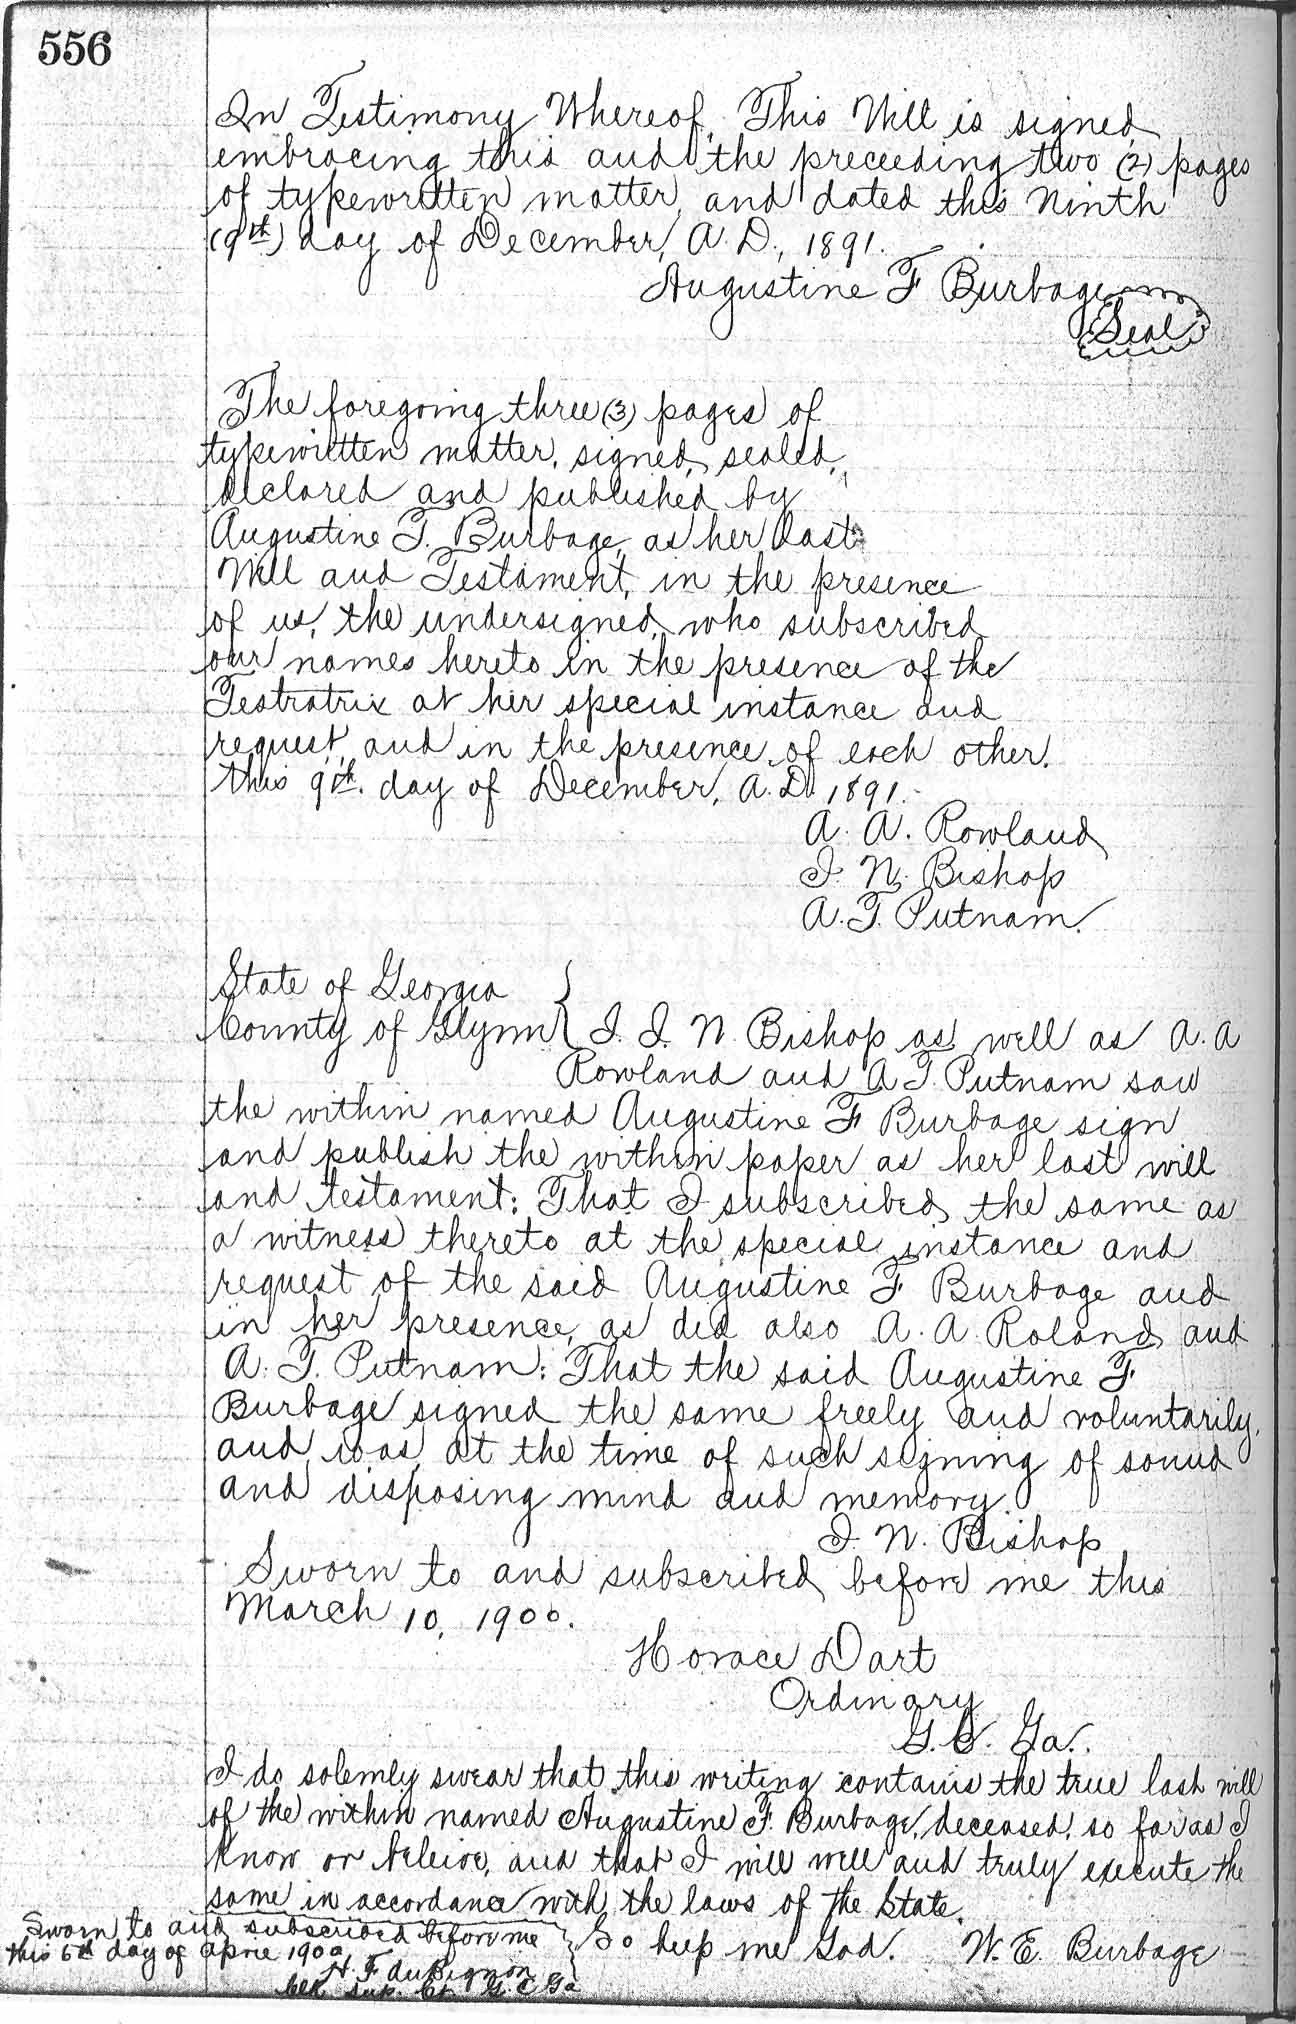 556
In Testimony Whereof, This Will is signed,
embracing this and the preceeding two (2) pages
of typewritten matter, and dated this Ninth
(9th) day of December, A. D., 1891.
Augustine F Burbage
Seal
The foregoing three (3) pages of
typewritten matter, signed, sealed,
declared and published by
Augustine F. Burbage, as her last
Will and Testament, in the presence
of us, the undersigned, who subscribed
our names hereto in the presence of the
Testratrix at her special instance and
request, and in the presence of each other.
this 9th. day of December, A. D. 1891.
A. A. Rowland
I. N. Bishop
A. T. Putnam.
State of Georgia
County of Glynn } I. I. N. Bishop as well as A. A
Rowland and A T. Putnam saw
the within named Augustine F Burbage sign
and publish the within paper as her last will
and testament: That I subscribed the same as
a witness thereto at the special instance and
request of the said Augustine F Burbage and
in her presence, as did also A. A. Roland and
A. T. Putnam: That the said Augustine F
Burbage signed the same freely and voluntarily,
and was at the time of such signing of sound
and disposing mind and memory.
I. N. Bishop
Sworn to and subscribed before me this
March 10, 1900.
Horace Dart
Ordinary
G. C. Ga.
I do solemly swear that this writing contains the true last will
of the within named Augustine F. Burbage, deceased, so far as I
know or beleive, and that I will well and truly execute the
same in accordance with the laws of the State.
So help me God. W. E. Burbage
Sworn to and subscribed before me
this 6th day of April 1900
H. F. duBignon
Clk Sup. Ct. G. C Ga